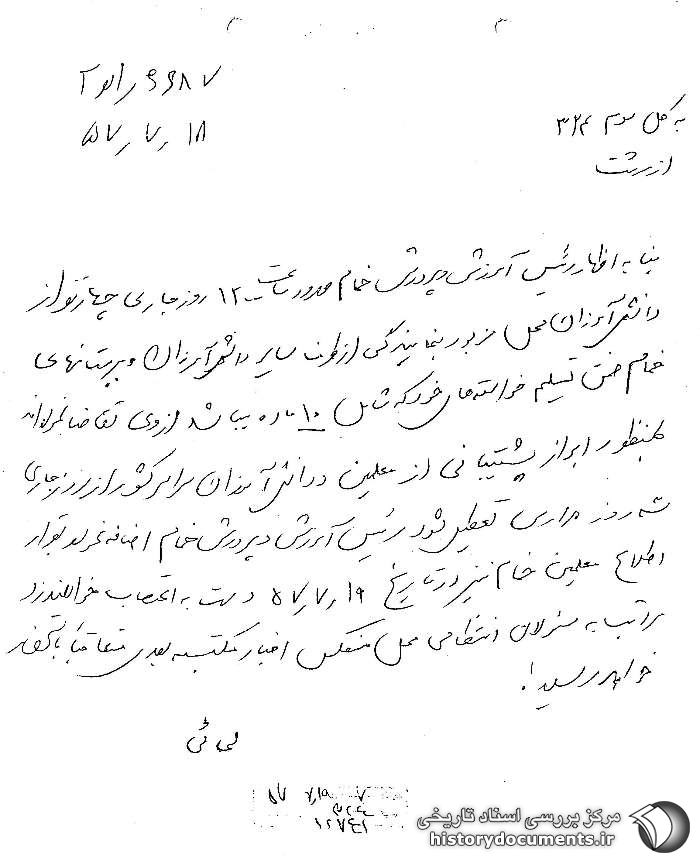 ۶۶۸۷ / ر
۵۷/۷/۱۸
به کل سوم ۳۲۴
از رشت
بنا به اظهار رئیس آموزش و پرورش خمام حدود ساعت ۱۲ روز جاری چهار نفر از
دانش آموزان محل مزبور بنمایندگی از طرف سایر دانش آموزان دبیرستانهای
خمام ضمن تسلیم خواسته های خود که شامل ۱۰ ماده میباشد از وی تقاضا نموده اند
بمنظور ابراز پشتیبانی از معلمین و دانش آموزان سراسر کشور از روز جاری
سه روز مدارس تعطیل شود رئیس آموزش و پرورش خمام اضافه نموده بقرار
اطلاع معلمین خمام نیز در تاریخ ۵۷/۷/۱۹ دست به اعتصاب خواهند زد
مراتب به مسئولان انتظامی محل منعکس اخبار مکتسبه بعدی متعاقباً باستحضار
خواهد رسید.
۵۷/۷/۱۹
مرکز بررسی اسناد تاریخی
historydocuments.ir